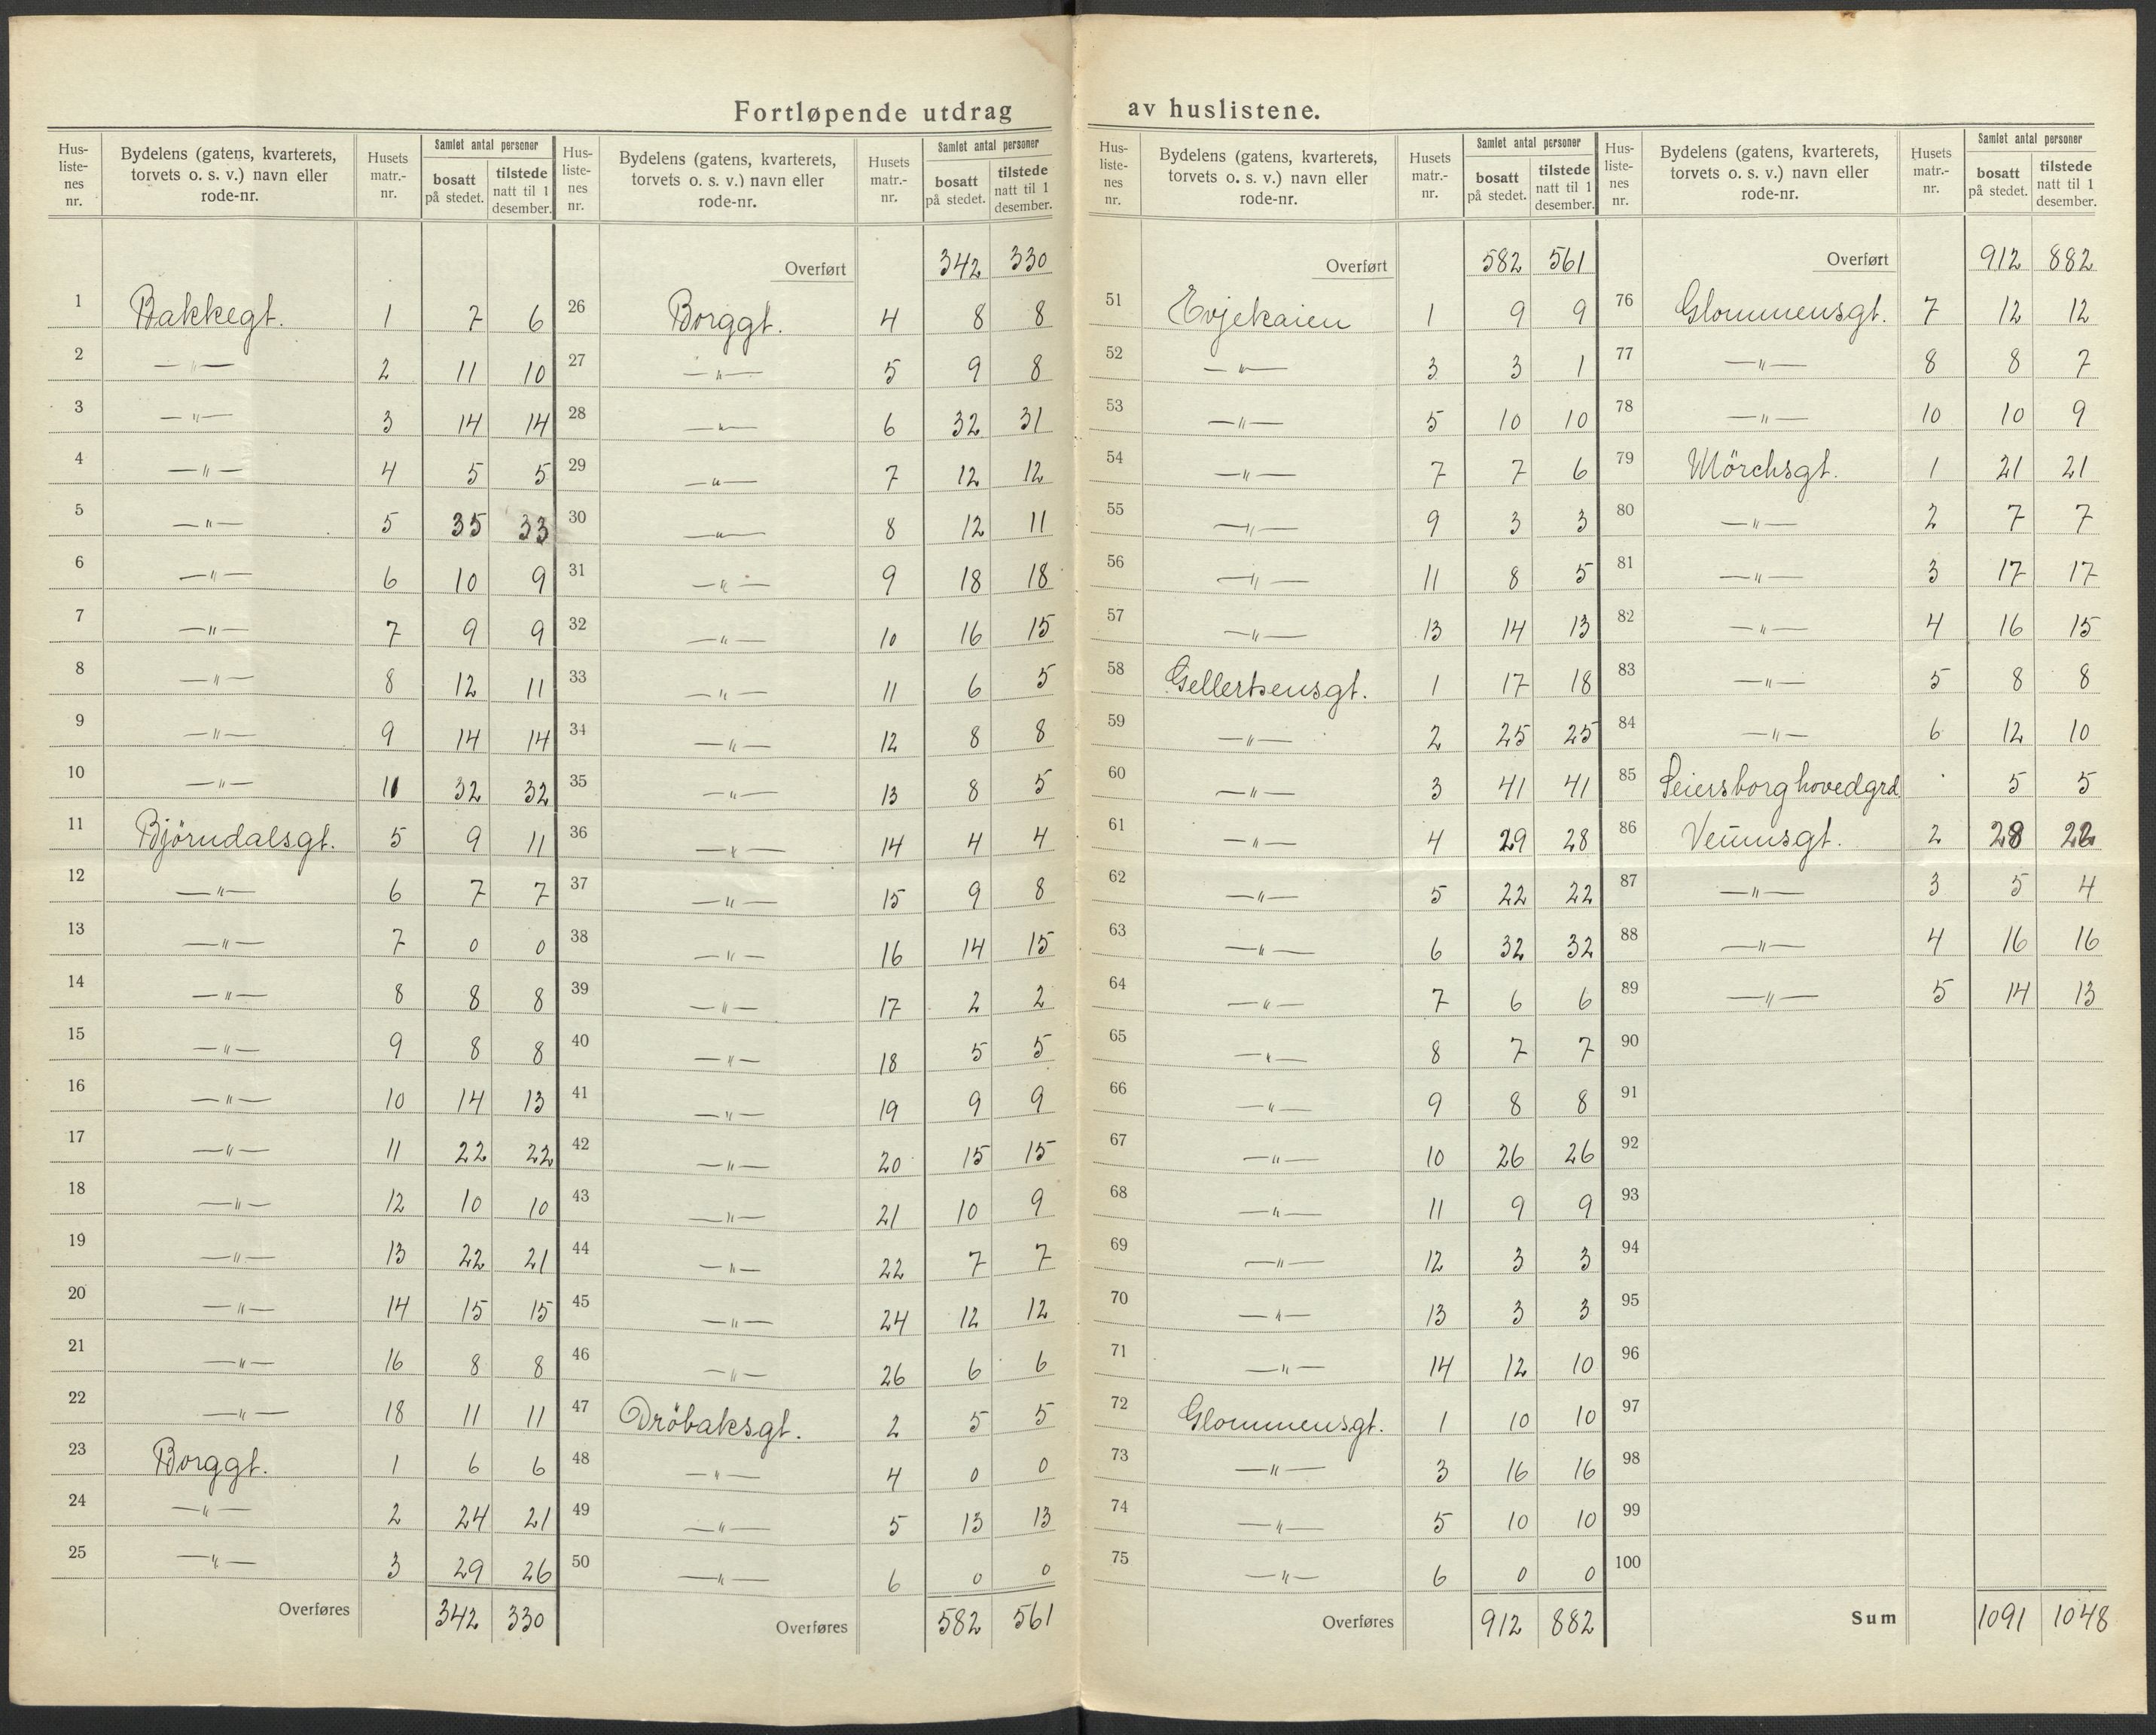 Fortløpende utdrag av huslistene.
Hus-listenes nr. | Bydelens (gatens, kvarterets, torvets o. s. v.) navn eller rode-nr. | Husets matr.-nr. | Samlet antal personer bosatt på stedet. | tilstede natt til 1 desember.
1 Bakkegt. 1 7 6
2 —"— 2 11 10
3 —"— 3 14 14
4 —"— 4 5 5
5 —"— 5 35 33
6 —"— 6 10 9
7 —"— 7 9 9
8 —"— 8 12 11
9 —"— 9 14 14
10 —"— 11 32 32
11 Björndalsgt. 5 9 11
12 —"— 6 7 7
13 —"— 7 0 0
14 —"— 8 8 8
15 —"— 9 8 8
16 —"— 10 14 13
17 —"— 11 22 22
18 —"— 12 10 10
19 —"— 13 22 21
20 —"— 14 15 15
21 —"— 16 8 8
22 —"— 18 11 11
23 Borggt. 1 6 6
24 —"— 2 24 21
25 —"— 3 29 26
Overføres 342 330
Hus-listenes nr. | Bydelens (gatens, kvarterets, torvets o. s. v.) navn eller rode-nr. | Husets matr.-nr. | Samlet antal personer bosatt på stedet. | tilstede natt til 1 desember.
Overført 342 330
26 Borggt. 4 8 8
27 —"— 5 9 8
28 —"— 6 32 31
29 —"— 7 12 12
30 —"— 8 12 11
31 —"— 9 18 18
32 —"— 10 16 15
33 —"— 11 6 5
34 —"— 12 8 8
35 —"— 13 8 5
36 —"— 14 4 4
37 —"— 15 9 8
38 —"— 16 14 15
39 —"— 17 2 2
40 —"— 18 5 5
41 —"— 19 9 9
42 —"— 20 15 15
43 —"— 21 10 9
44 —"— 22 7 7
45 —"— 24 12 12
46 —"— 26 6 6
47 Dröbaksgt. 2 5 5
48 —"— 4 0 0
49 —"— 5 13 13
50 —"— 6 0 0
Overføres 582 561
Hus-listenes nr. | Bydelens (gatens, kvarterets, torvets o. s. v.) navn eller rode-nr. | Husets matr.-nr. | Samlet antal personer bosatt på stedet. | tilstede natt til 1 desember.
Overført 582 561
51 Evjekaien 1 9 9
52 —"— 3 3 1
53 —"— 5 10 10
54 —"— 7 7 6
55 —"— 9 3 3
56 —"— 11 8 5
57 —"— 13 14 13
58 Gellertsensgt. 1 17 18
59 —"— 2 25 25
60 —"— 3 41 41
61 —"— 4 29 28
62 —"— 5 22 22
63 —"— 6 32 32
64 —"— 7 6 6
65 —"— 8 7 7
66 —"— 9 8 8
67 —"— 10 26 26
68 —"— 11 9 9
69 —"— 12 3 3
70 —"— 13 3 3
71 —"— 14 12 10
72 Glommensgt. 1 10 10
73 —"— 3 16 16
74 —"— 5 10 10
75 —"— 6 0 0
Overføres 912 882
Hus-listenes nr. | Bydelens (gatens, kvarterets, torvets o. s. v.) navn eller rode-nr. | Husets matr.-nr. | Samlet antal personer bosatt på stedet. | tilstede natt til 1 desember.
Overført 912 882
76 Glommensgt. 7 12 12
77 —"— 8 8 7
78 —"— 10 10 9
79 Mörchsgt. 1 21 21
80 —"— 2 7 7
81 —"— 3 17 17
82 —"— 4 16 15
83 —"— 5 8 8
84 —"— 6 12 10
85 Seiersborg hovedgrd 5 5
86 Veumsgt. 2 28
87 —"— 3 5 4
88 —"— 4 16 16
89 —"— 5 14 13
90
91
92
93
94
95
96
97
98
99
100
Sum 1091 1048